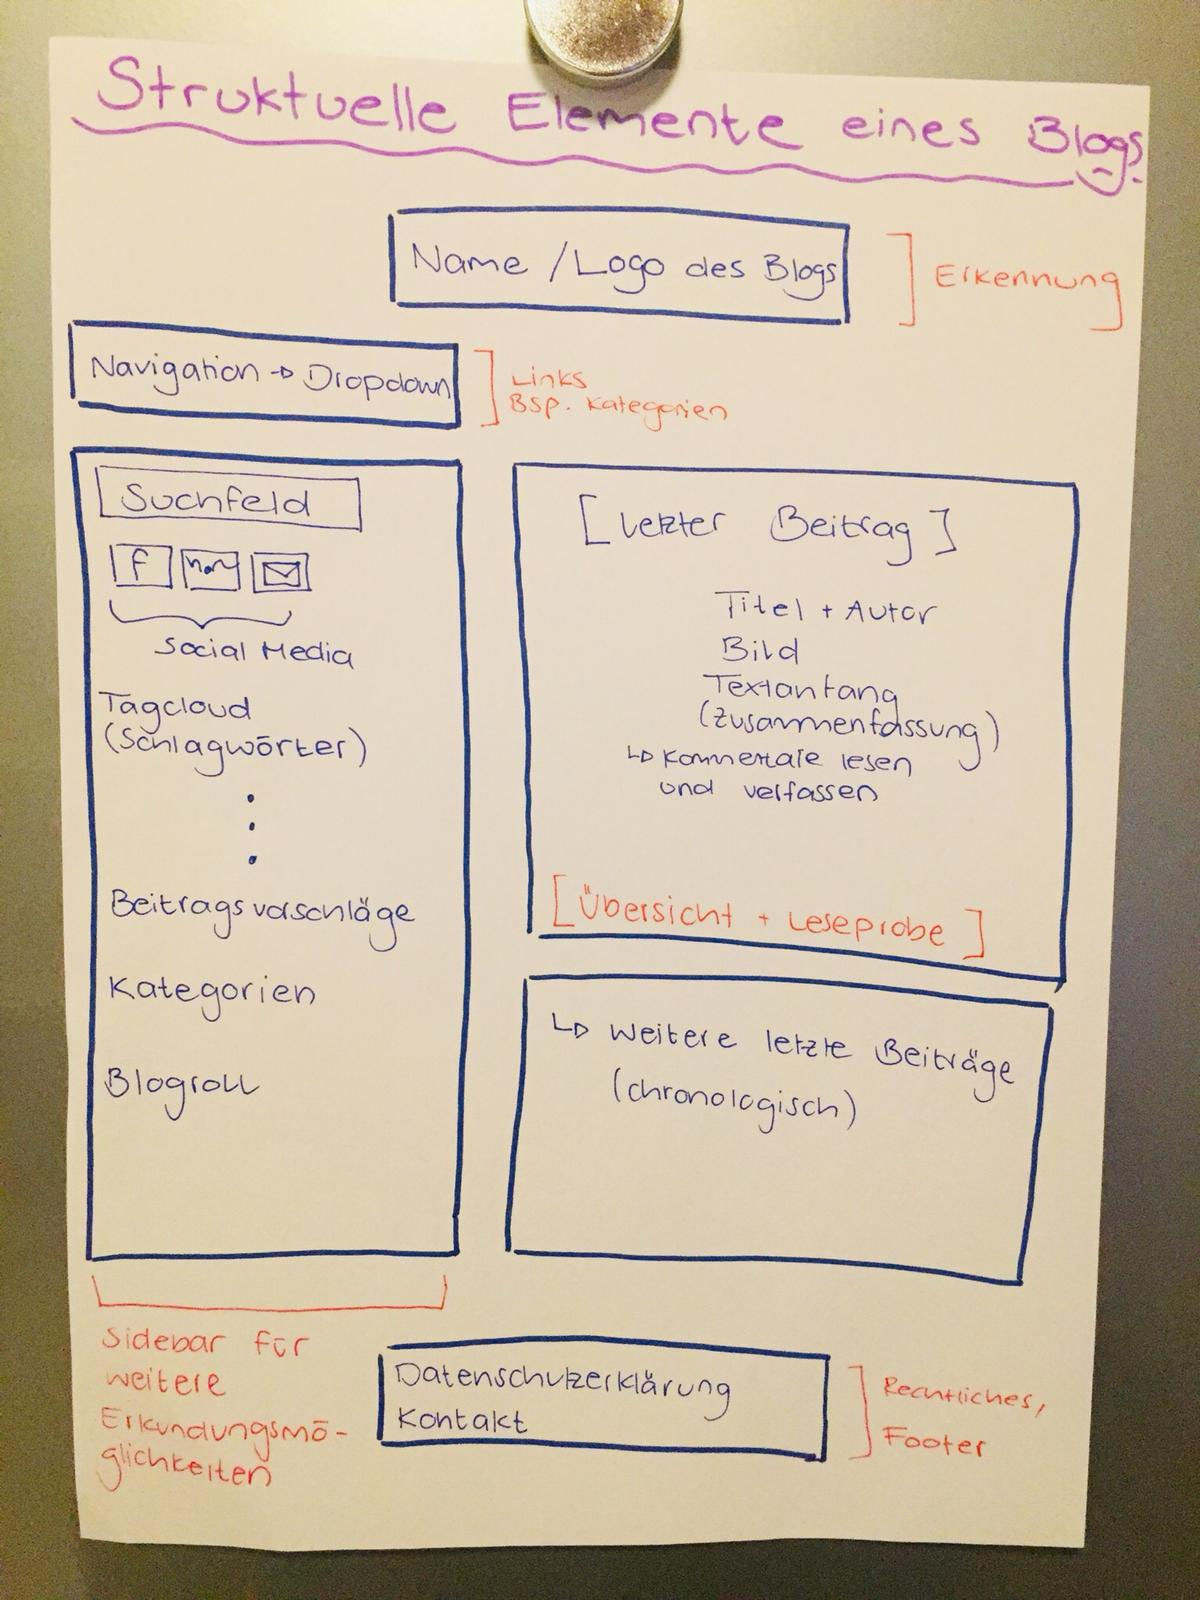 Struktuelle Elemente eines Blogs
Name / Logo des Blogs
Erkennung
Navigation → Dropdown
Links
Bsp. Kategorien
Suchfeld
f
Social Media
Tagcloud
(Schlagwörter)
Beitragsvorschläge
Kategorien
Blogroll
Sidebar für
weitere
Erkundungsmö-
glichkeiten
[Letzter Beitrag]
Titel + Autor
Bild
Textanfang
(Zusammenfassung)
↳ Kommertare lesen
und verfassen
[Übersicht + Leseprobe]
↳ weitere letzte Beiträge
(chronologisch)
Datenschutzerklärung
Kontakt
Rechtliches,
Footer